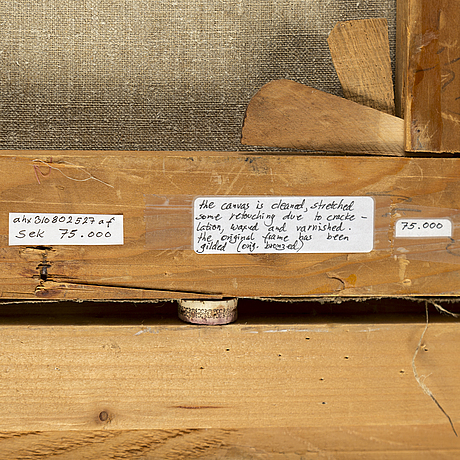 ahx310802527af
SEK 75.000
the canvas is cleaned, stretched
some retouching due to cracke-
lation, waxed and varnished.
the original frame has been
gilded (orig. bronzed)
75.000